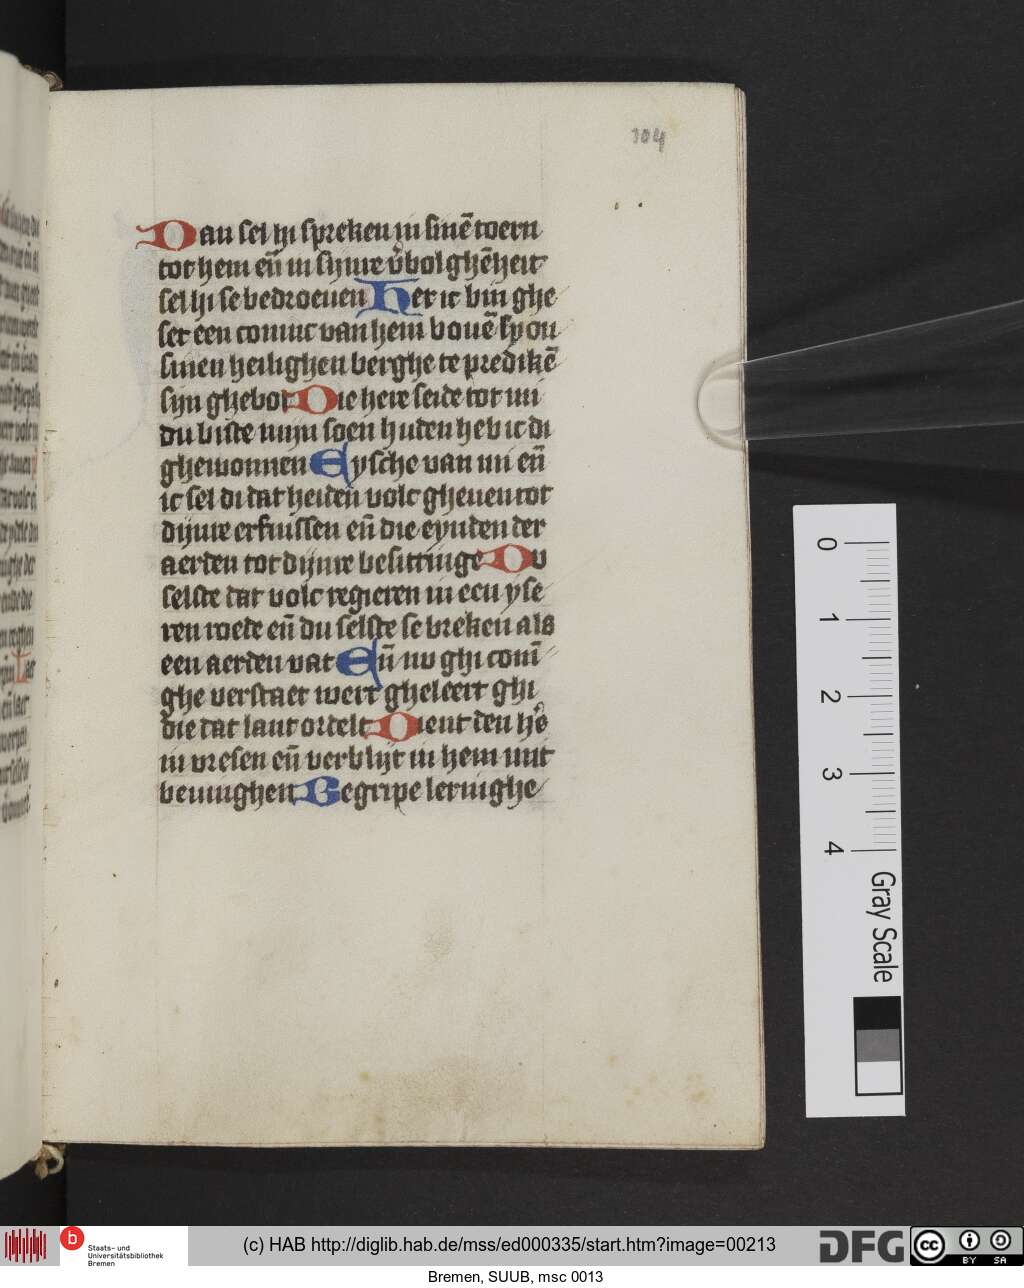 104
Dan sel hi spreken in sinē toern
tot hem eñ in sijnre v̓bolghēheit
sel hi se bedroeuen Her ic bin ghe
set een coninc van hem bouē syon
sinen heilighen berghe te predikē
sijn ghebot Die here seide tot mi
du biste mijn soen huden heb ic di
ghewonnen Eysche van mi eñ
ic sel di dat heiden volc gheuen tot
dijnre erfnissen eñ die eynden der
aerden tot dijnre besittinge Du
selste dat volc regieren in een yse
ren roede eñ du selste se breken als
een aerden vat Eñ nu ghi conī
ghe verstaet wert gheleert ghi
die dat lant ordelt Dient den he̓
in vresen eñ verblijt in hem mit
beuinghen Begripe leringhe
0
1
2
3
4
Gray Scale
b Staats- und
Universitätsbibliothek
Bremen
(c) HAB http://diglib.hab.de/mss/ed000335/start.htm?image=00213
DFG
cc BY SA
Bremen, SUUB, msc 0013